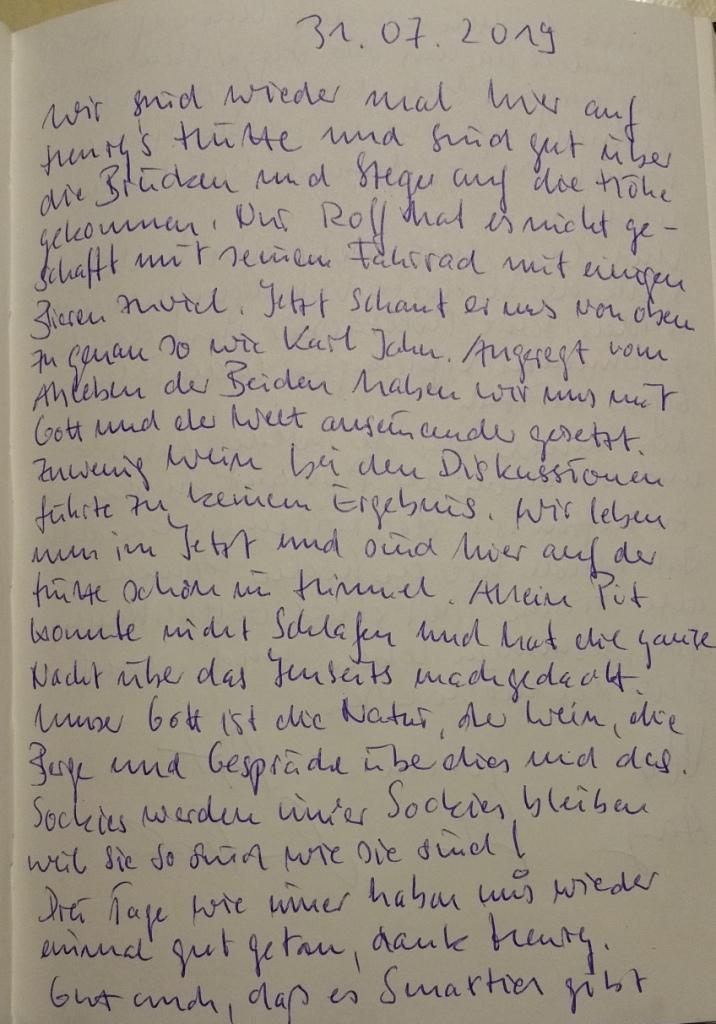 31.07.2019
Wir sind wieder mal hier auf
Henry's Hütte und sind gut über
die Brücken und Stege auf die Höhe
gekommen. Nur Rolf hat es nicht ge-
schafft mit seinem Fahrrad mit einigen
Bieren zuviel. Jetzt schaut er uns von oben
zu genau so wie Karl Jahn. Angeregt vom
Ableben der Beiden haben wir uns mit
Gott und der Welt auseinander gesetzt.
Zuwenig Wein bei den Diskussionen
führte zu keinem Ergebnis. Wir leben
nun im Jetzt und sind hier auf der
Hütte schon im Himmel. Allein Pit
konnte nicht schlafen und hat die ganze
Nacht über das Jenseits nachgedacht.
Unser Gott ist die Natur, der Wein, die
Berge und Gespräche über dies und das.
Sockies werden immer Sockies bleiben
weil sie so sind wie sie sind!
Drei Tage wie immer haben uns wieder
einmal gut getan, dank Henry.
Gut auch, daß es Smartien gibt